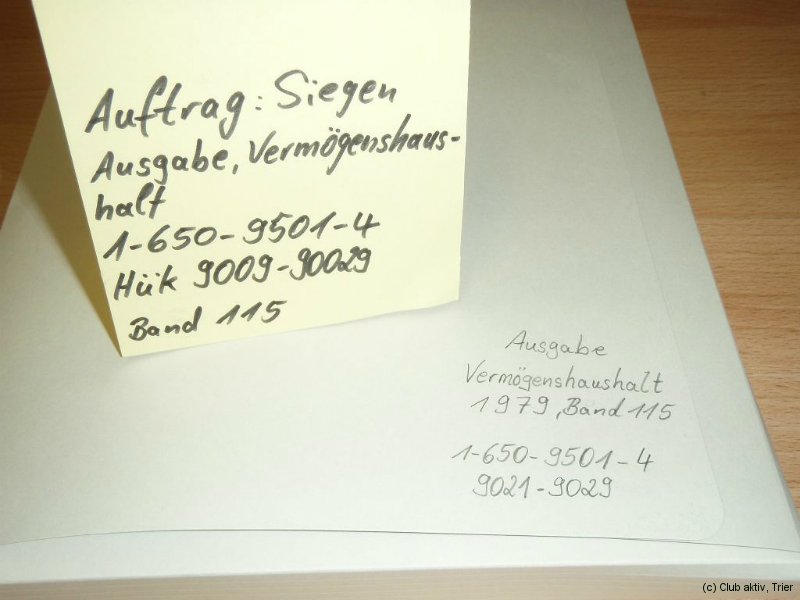 Auftrag: Siegen
Ausgabe, Vermögenshaus-
halt
1-650-9501-4
Hük 9009-90029
Band 115
Ausgabe
Vermögenshaushalt
1979, Band 115
1-650-9501-4
9021-9029
(c) Club aktiv, Trier